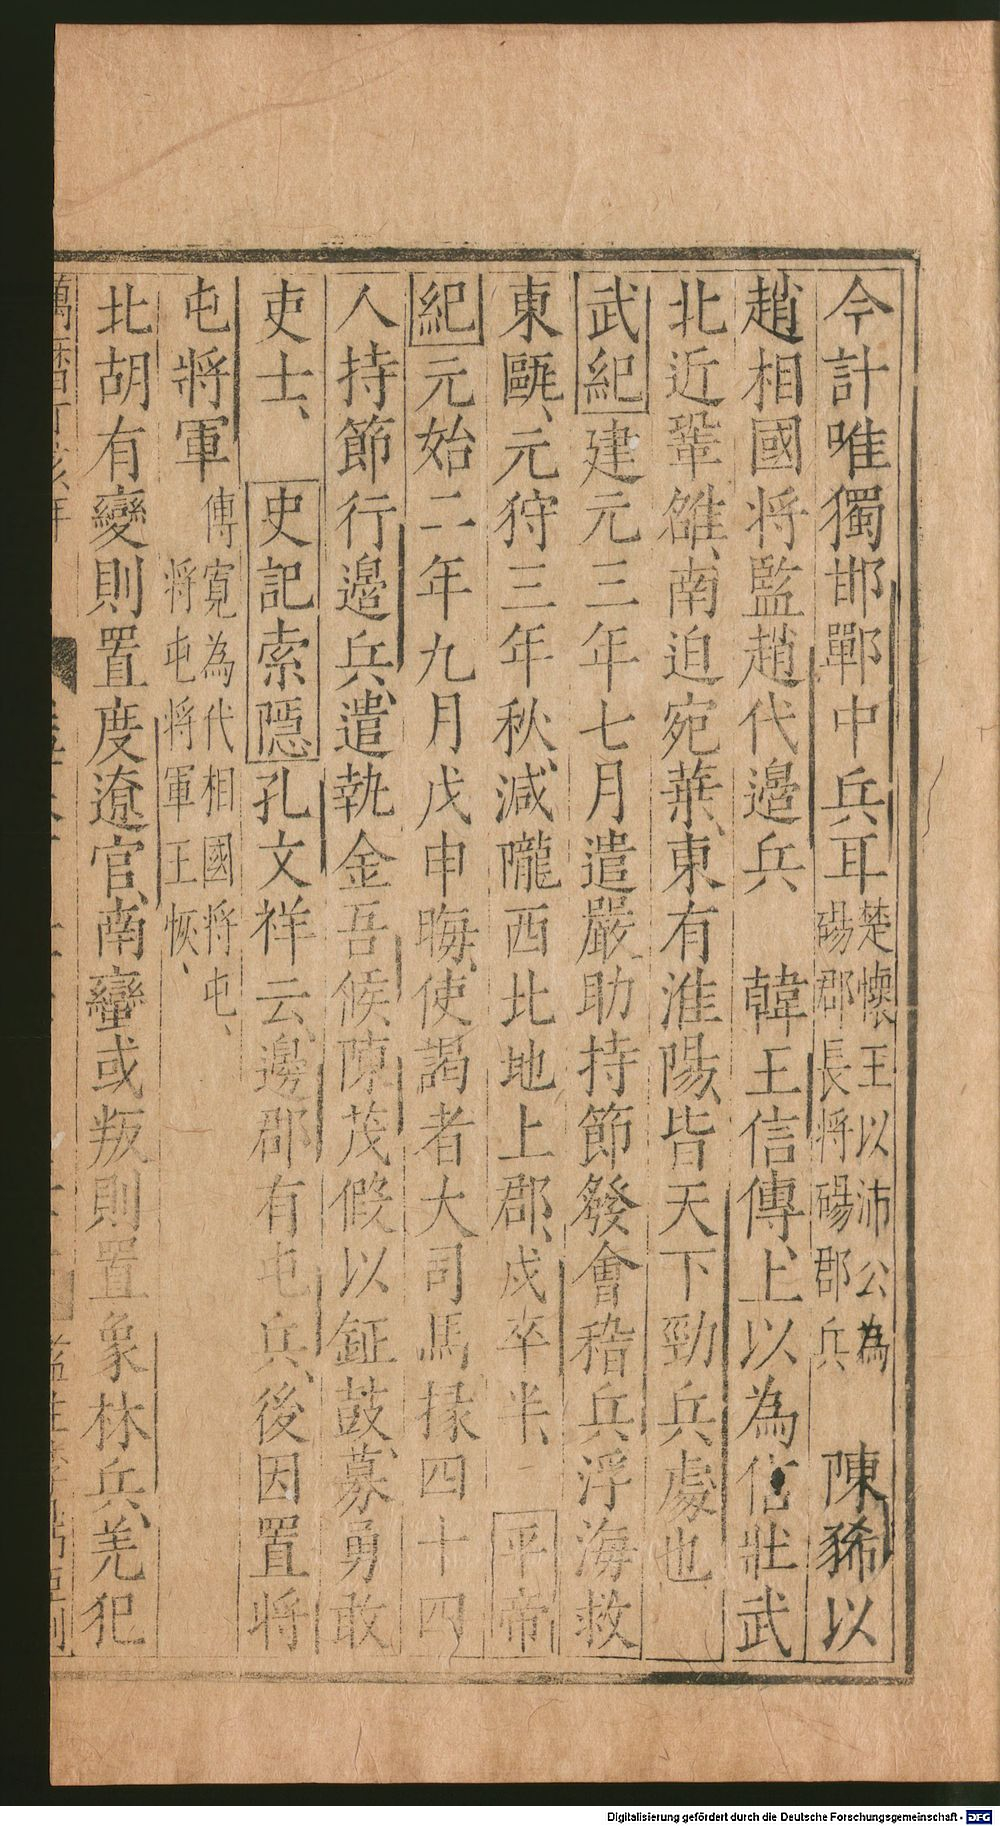 今計唯獨邯鄲中兵耳楚懷王以沛公為碭郡長將碭郡兵 陳豨以
趙相國将監趙代邉兵 韓王信傳、上以為信壯武
北近鞏雒、南迫宛葉、東有淮陽、皆天下勁兵處也
武紀建元三年七月遣嚴助持節發會稽兵、浮海救
東甌、元狩三年秋、減隴西北地上郡、戍卒半、 平帝
紀元始二年九月戊申晦、使謁者大司馬掾四十四
人持節行邉兵、遣執金吾候陳茂假以鉦鼓、募勇敢
吏士、 史記索隱孔文祥云、邊郡有屯兵、後因置将
屯將軍傅寛為代相國將屯、将屯将軍王恢、
北胡有變則置度遼官、南蠻或叛則置象林兵、羌犯
萬曆丁亥年
Digitalisierung gefördert durch die Deutsche Forschungsgemeinschaft - DFG